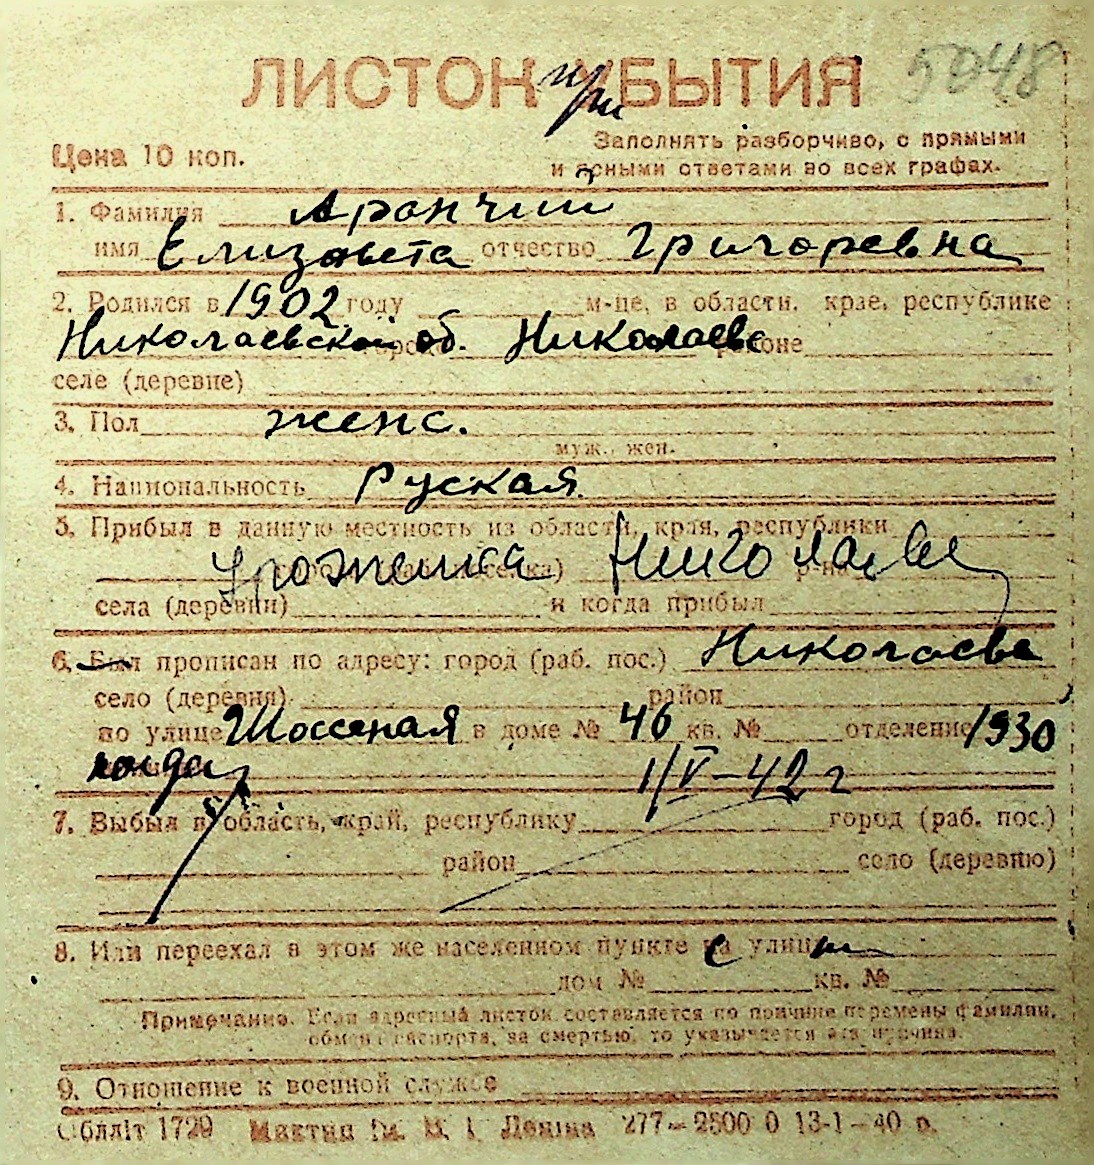 ЛИСТОК при УБЫТИЯ 5048
Цена 10 коп.
Заполнять разборчиво, с прямыми
и ясными ответами во всех графах.
1. Фамилия Арончий
имя Елизавета отчество Григоревна
2. Родился в 1902 году м-це, в области, крае, республике
Николаевской об. Николаеве районе
селе (деревне)
3. Пол женс.
муж., жен.
4. Национальность Руская
5. Прибыл в данную местность из области, края, республики
Уроженка Николаева
села (деревни) и когда прибыл
6. Был прописан по адресу: город (раб. пос.) Николаева
село (деревня) район
по улице Шоссеная в доме № 46 кв. № отделение 1930
года 1/V-42 г
7. Выбыл в область, край, республику город (раб. пос.)
район село (деревню)
8. Или переехал в этом же населенном пункте на улицу
дом № кв. №
Примечание. Если адресный листок составляется по причине перемены фамилии,
обмена паспорта, за смертью, то указывается эта причина.
9. Отношение к военной службе
Облліт 1729 Леніна 277—2500 0 13-1-40 р.